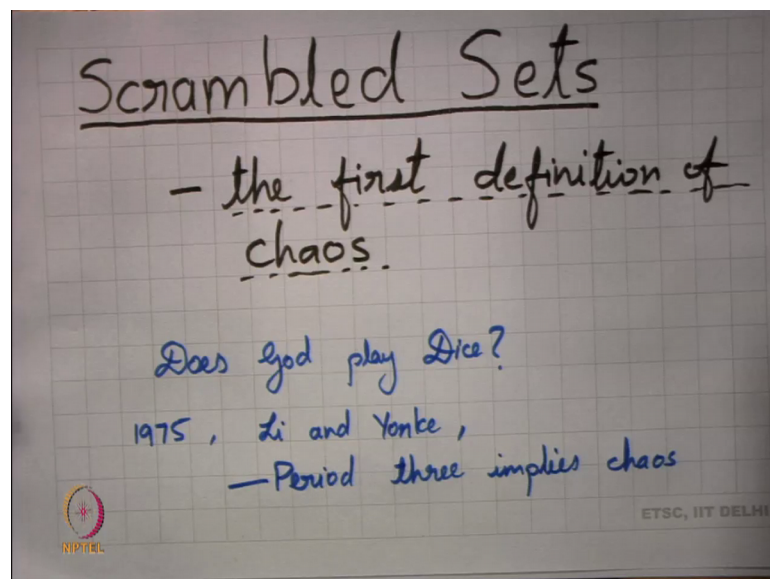 Scrambled Sets
- the first definition of
chaos.
Does God play Dice?
1975, Li and Yonke,
- Period three implies chaos
ETSC, IIT DELHI
NPTEL